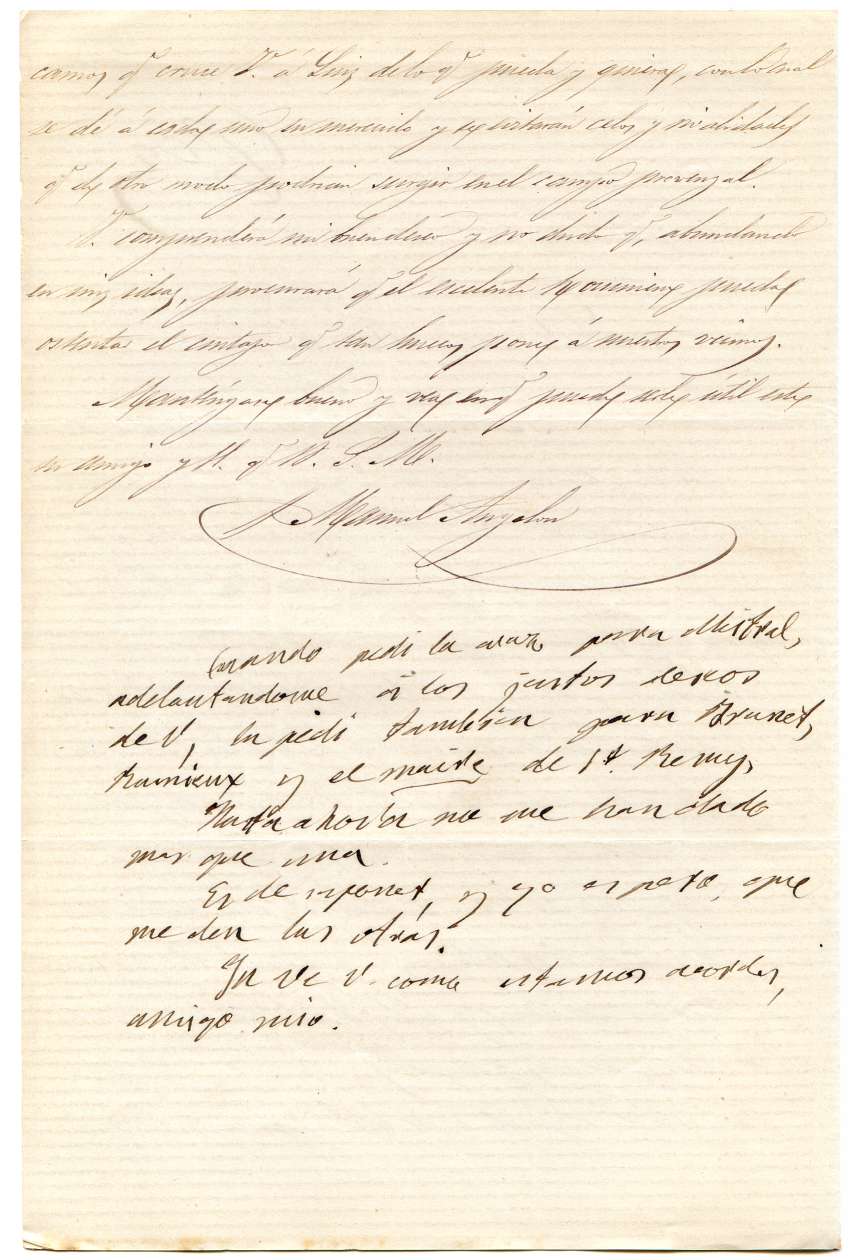 q.e V. á Luis de lo q.e pueda y quiera, con lo cual
se dé á cada uno su merecido y se evitarán celos y rivalidades
q.e de otro modo podrian surgir en el campo provenzal.
V. comprenderá mi buen deseo y no dudo q.e, abundando
en mis ideas, procurará q.e el excelente Roumieux pueda
ostentar el cintajo q.e tan huecos pone á nuestros vecinos.
Manténgase bueno y vea en q.e puede serle útil este
su amigo y S. q. B. S. M.
Manuel Angelon
Cuando pedí la cruz para Mistral,
adelantandome á los justos deseos
de V, la pedí tambien para Brunet,
Rumieux y el maire de St. Remy,
Hasta ahora no me han dado
mas que una.
Es de esperar, y yo espero, que
me den las otras.
Ya ve V. como estamos acordes,
amigo mio.